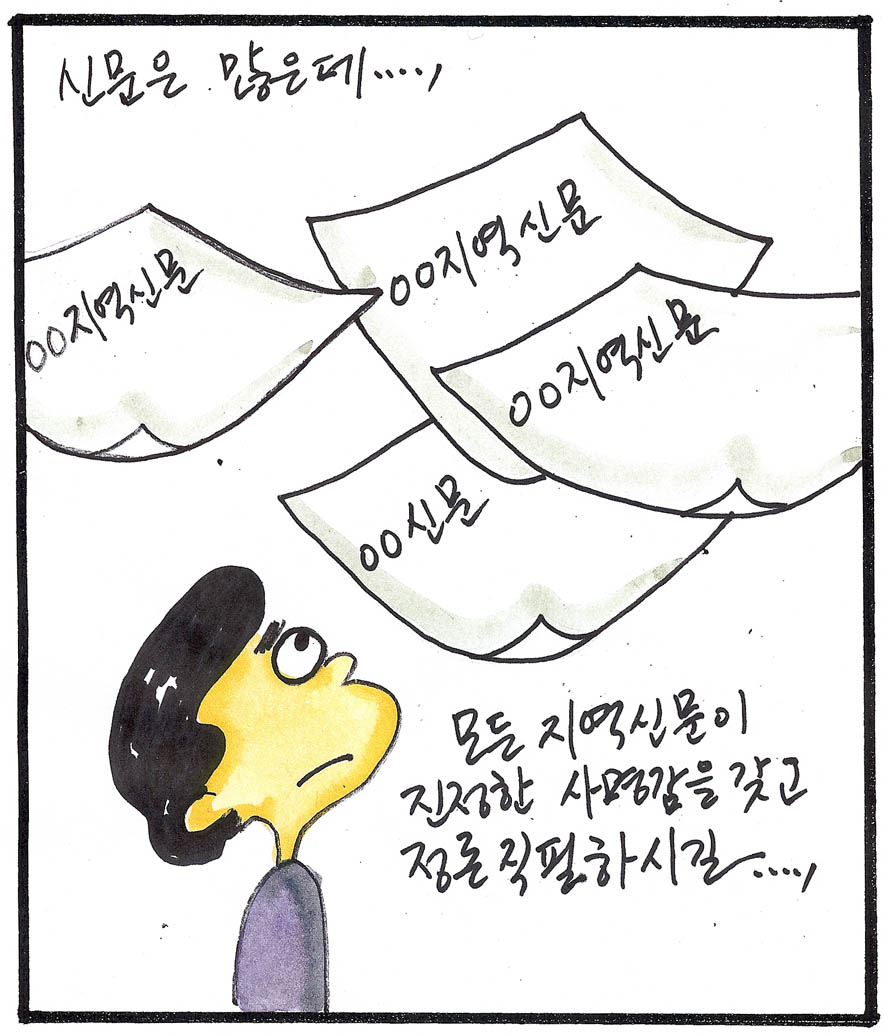 신문은 많은데....,
OO지역신문
OO지역신문
OO지역신문
OO신문
모든 지역신문이
진정한 사명감을 갖고
정론직필하시길....,